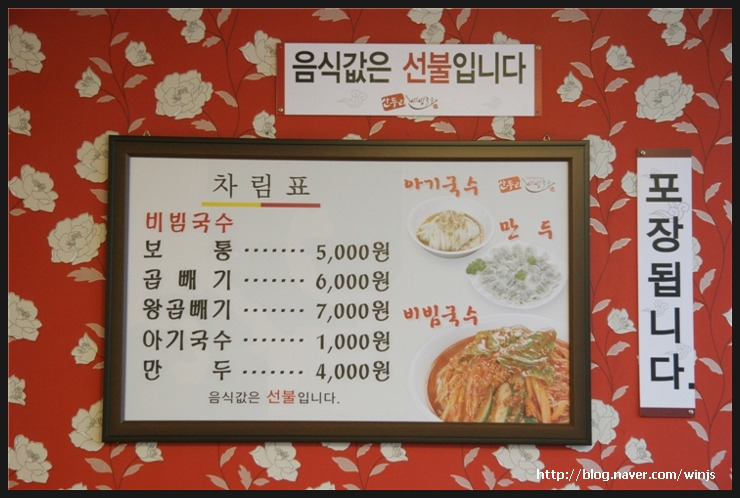 음식값은 선불입니다
차림표
비빔국수
보 통 ······· 5,000원
곱빼기 ······· 6,000원
왕곱빼기 ······· 7,000원
아기국수 ······· 1,000원
만 두 ······· 4,000원
음식값은 선불입니다.
아기국수
만 두
비빔국수
포장됩니다.
http://blog.naver.com/winjs